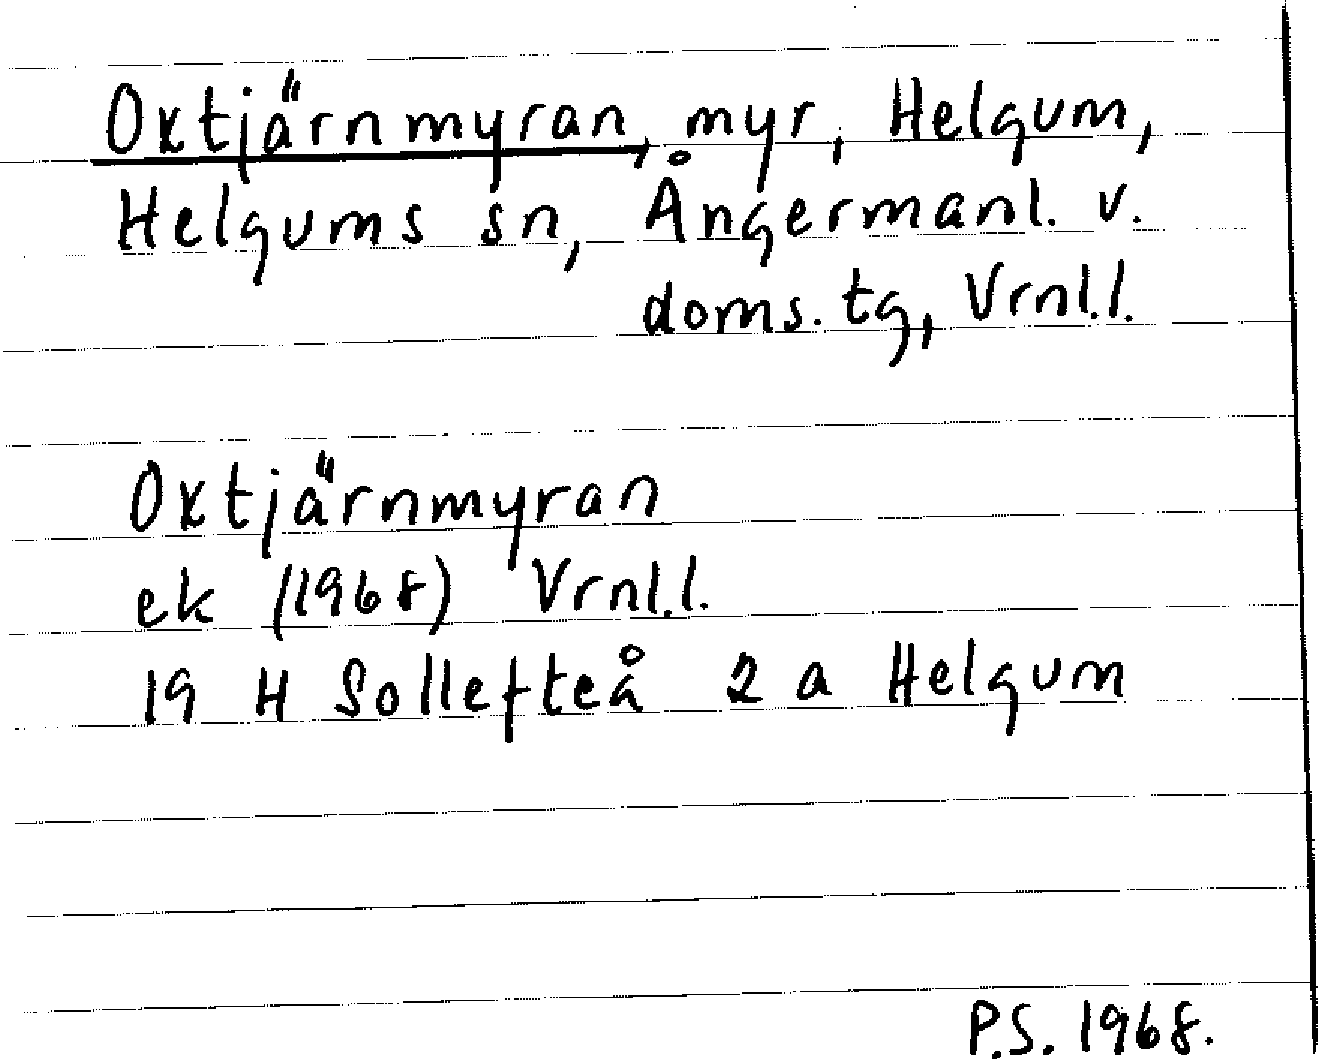 Oxtjärnmyran, myr, Helgum,
Helgums sn, Ångermanl. v.
doms. tg, Vrnl.l.
Oxtjärnmyran
ek (1968) Vrnl.l.
19 H Sollefteå 2 a Helgum
P.S. 1968.